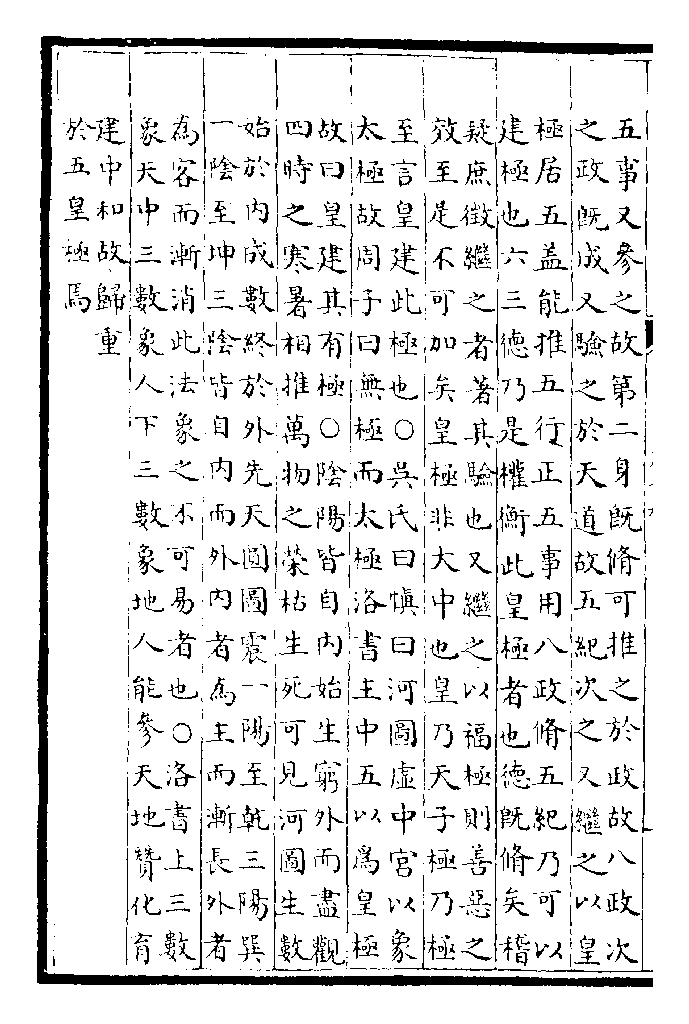 五事又參之故第二身旣脩可推之於政故八政次
之政旣成又驗之於天道故五紀次之又繼之以皇
極居五盖能推五行正五事用八政脩五紀乃可以
建極也六三德乃是權衡此皇極者也德旣脩矣稽
疑庶徵繼之者著其驗也又繼之以福極則善惡之
效至是不可加矣皇極非大中也皇乃天子極乃極
至言皇建此極也○吳氏曰愼曰河圖虛中宮以象
太極故周子曰無極而太極洛書主中五以爲皇極
故曰皇建其有極○陰陽皆自內始生窮外而盡觀
四時之寒暑相推萬物之榮枯生死可見河圖生數
始於內成數終於外先天圓圖震一陽至乾三陽巽
一陰至坤三陰皆自內而外內者爲主而漸長外者
為客而漸消此法象之不可易者也○洛書上三數
象天中三數象人下三數象地人能參天地贊化育
建中和故歸重
於五皇極焉